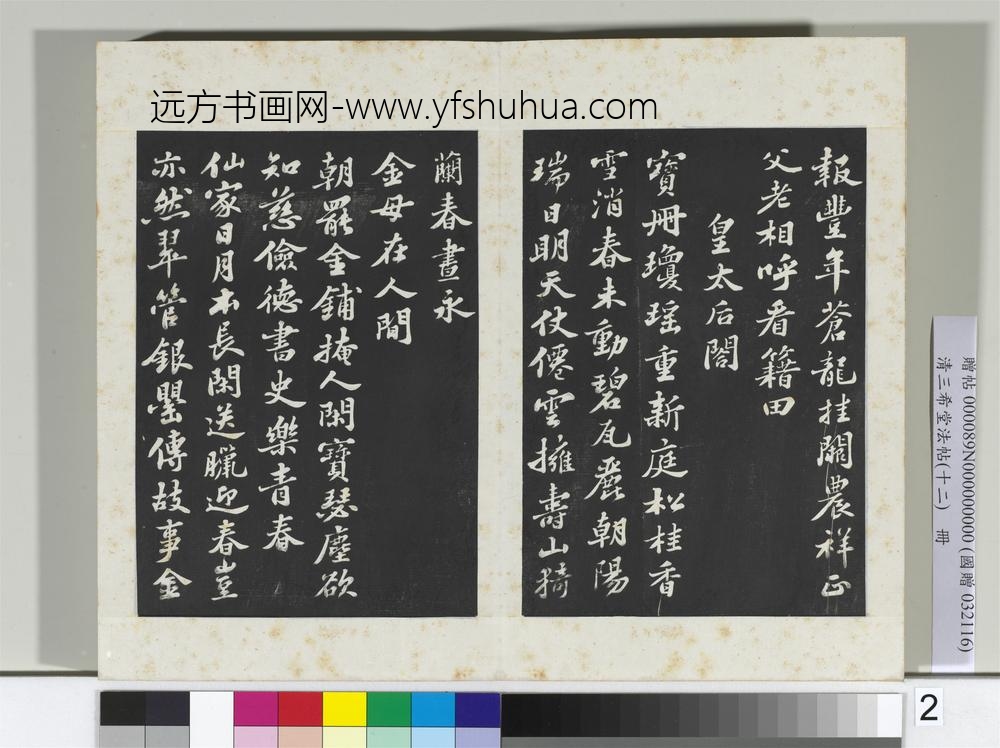 远方书画网-www.yfshuhua.com
報豐年蒼龍挂闕農祥正
父老相呼看籍田
皇太后閤
寶冊瓊瑶重新庭松桂香
雪消春未動碧瓦麗朝陽
瑞日明天仗僊雲擁壽山猗
蘭春晝永
金母在人間
朝罷金鋪掩人閑寶瑟塵欲
知慈儉德書史樂青春
仙家日月本長閑送臘迎春豈
亦然翠管銀罌傳故事金
贈帖 000089N000000000 (國贈 032116)
清三希堂法帖(十二) 冊
2